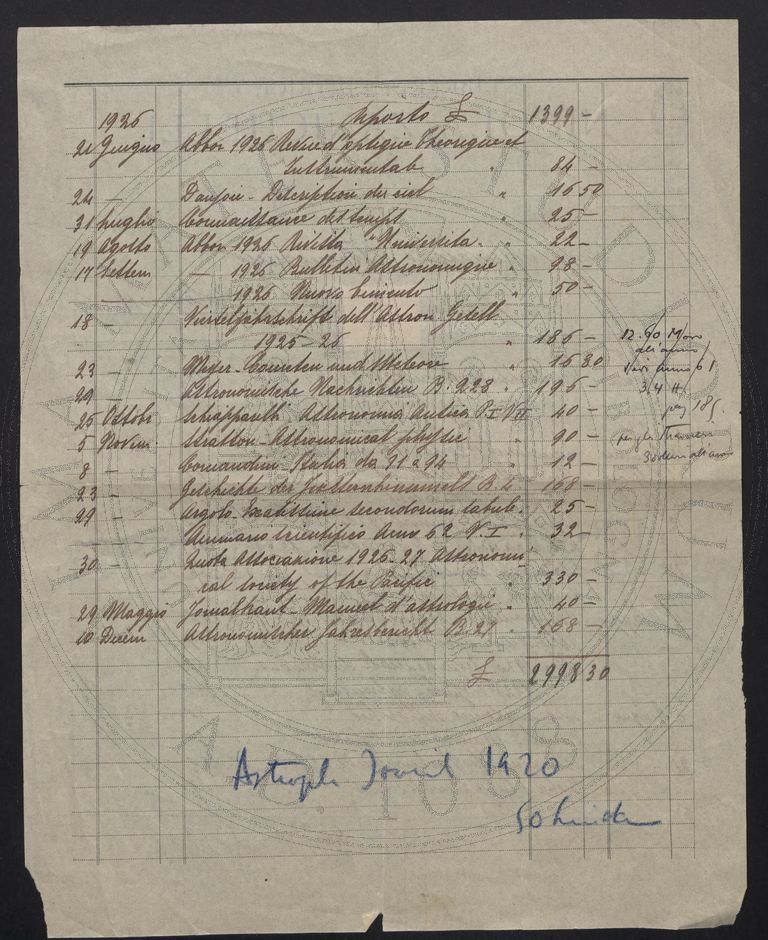 1926 Apporto £ 1399 -
21 Giugno Abbon 1926 Revue d'optique Theorique et
Instrumentale " 84 -
24 - Danjon - Description du ciel " 16 50
31 Luglio Connaissance des temps " 25 -
19 Agosto Abbon 1926 Rivista "Universita " 22 -
17 Settem - 1926 Bulletin Astronomique " 98 -
1926 Nuovo Cimento " 50 -
18 - Vierteljahrschrift dell'Astron Gesell
1925-26 " 186 -
23 - Cometen und Meteore " 16 80
29 - Astronomische Nachrichten B. 223 " 196 -
25 Ottob Schiapparelli Astronomia Antica P I V II 40 -
5 Novem. Stratton - Astronomical physic " 90 -
8 - Comandini - Italia da 91 a 94 " 12 -
23 - Geschichte des Fixsternhimmels B. 4 168 -
29 - Argolo - secondorum tabulæ " 25 -
Annuario scientifico Anno 62 V. I " 32
30 - Quota Associazione 1926-27 Astronomi
cal society of the Pacific " 330 -
29 Maggio Manuel d'astrologie " 40 -
10 Dicem Astronomischer Jahresbericht B. 27 " 168 -
£ 2998 30
12.90
anno 61
3.4 H
185
Astroph 1920